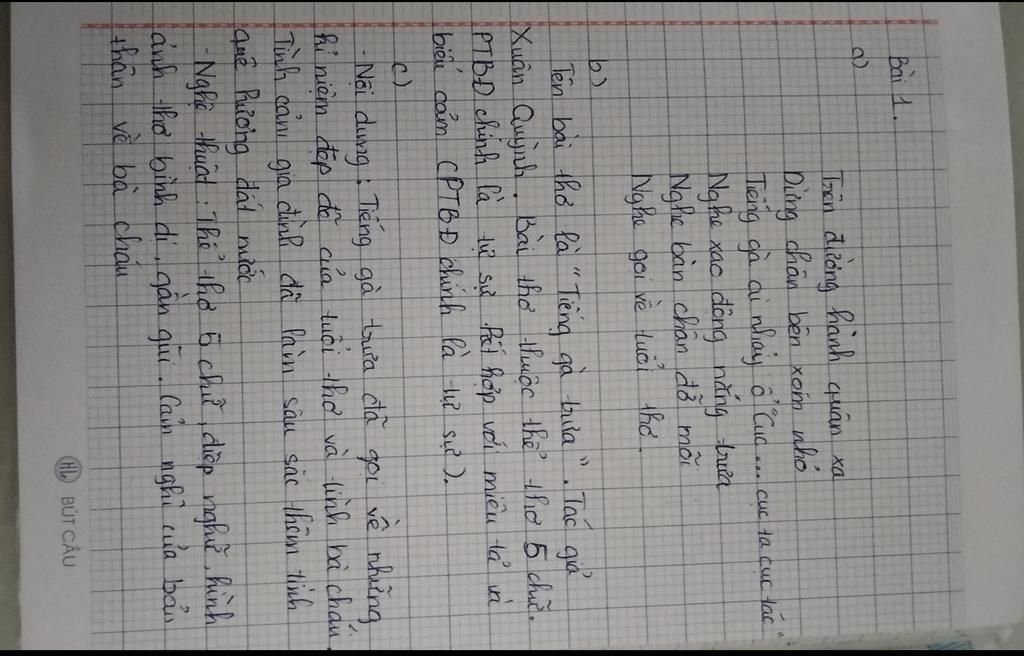 Bài 1.
a)
Trên đường hành quân xa
Dừng chân bên xóm nhỏ
Tiếng gà ai nhảy ổ "Cục... cục ta cục tác"
Nghe xao động nắng trưa
Nghe bàn chân đỡ mỏi
Nghe gọi về tuổi thơ.
b)
Tên bài thơ là "Tiếng gà trưa". Tác giả
Xuân Quỳnh. Bài thơ thuộc thể thơ 5 chữ.
PTBĐ chính là tự sự kết hợp với miêu tả và
biểu cảm (PTBĐ chính là tự sự).
c)
- Nội dung: Tiếng gà trưa đã gọi về những
kỉ niệm đẹp đẽ của tuổi thơ và tình bà cháu.
Tình cảm gia đình đã làm sâu sắc thêm tình
quê hương đất nước
- Nghệ thuật: Thể thơ 5 chữ, điệp ngữ, hình
ảnh thơ bình dị, gần gũi. Cảm nghĩ của bản
thân về bà cháu
HL BÚT CÂU